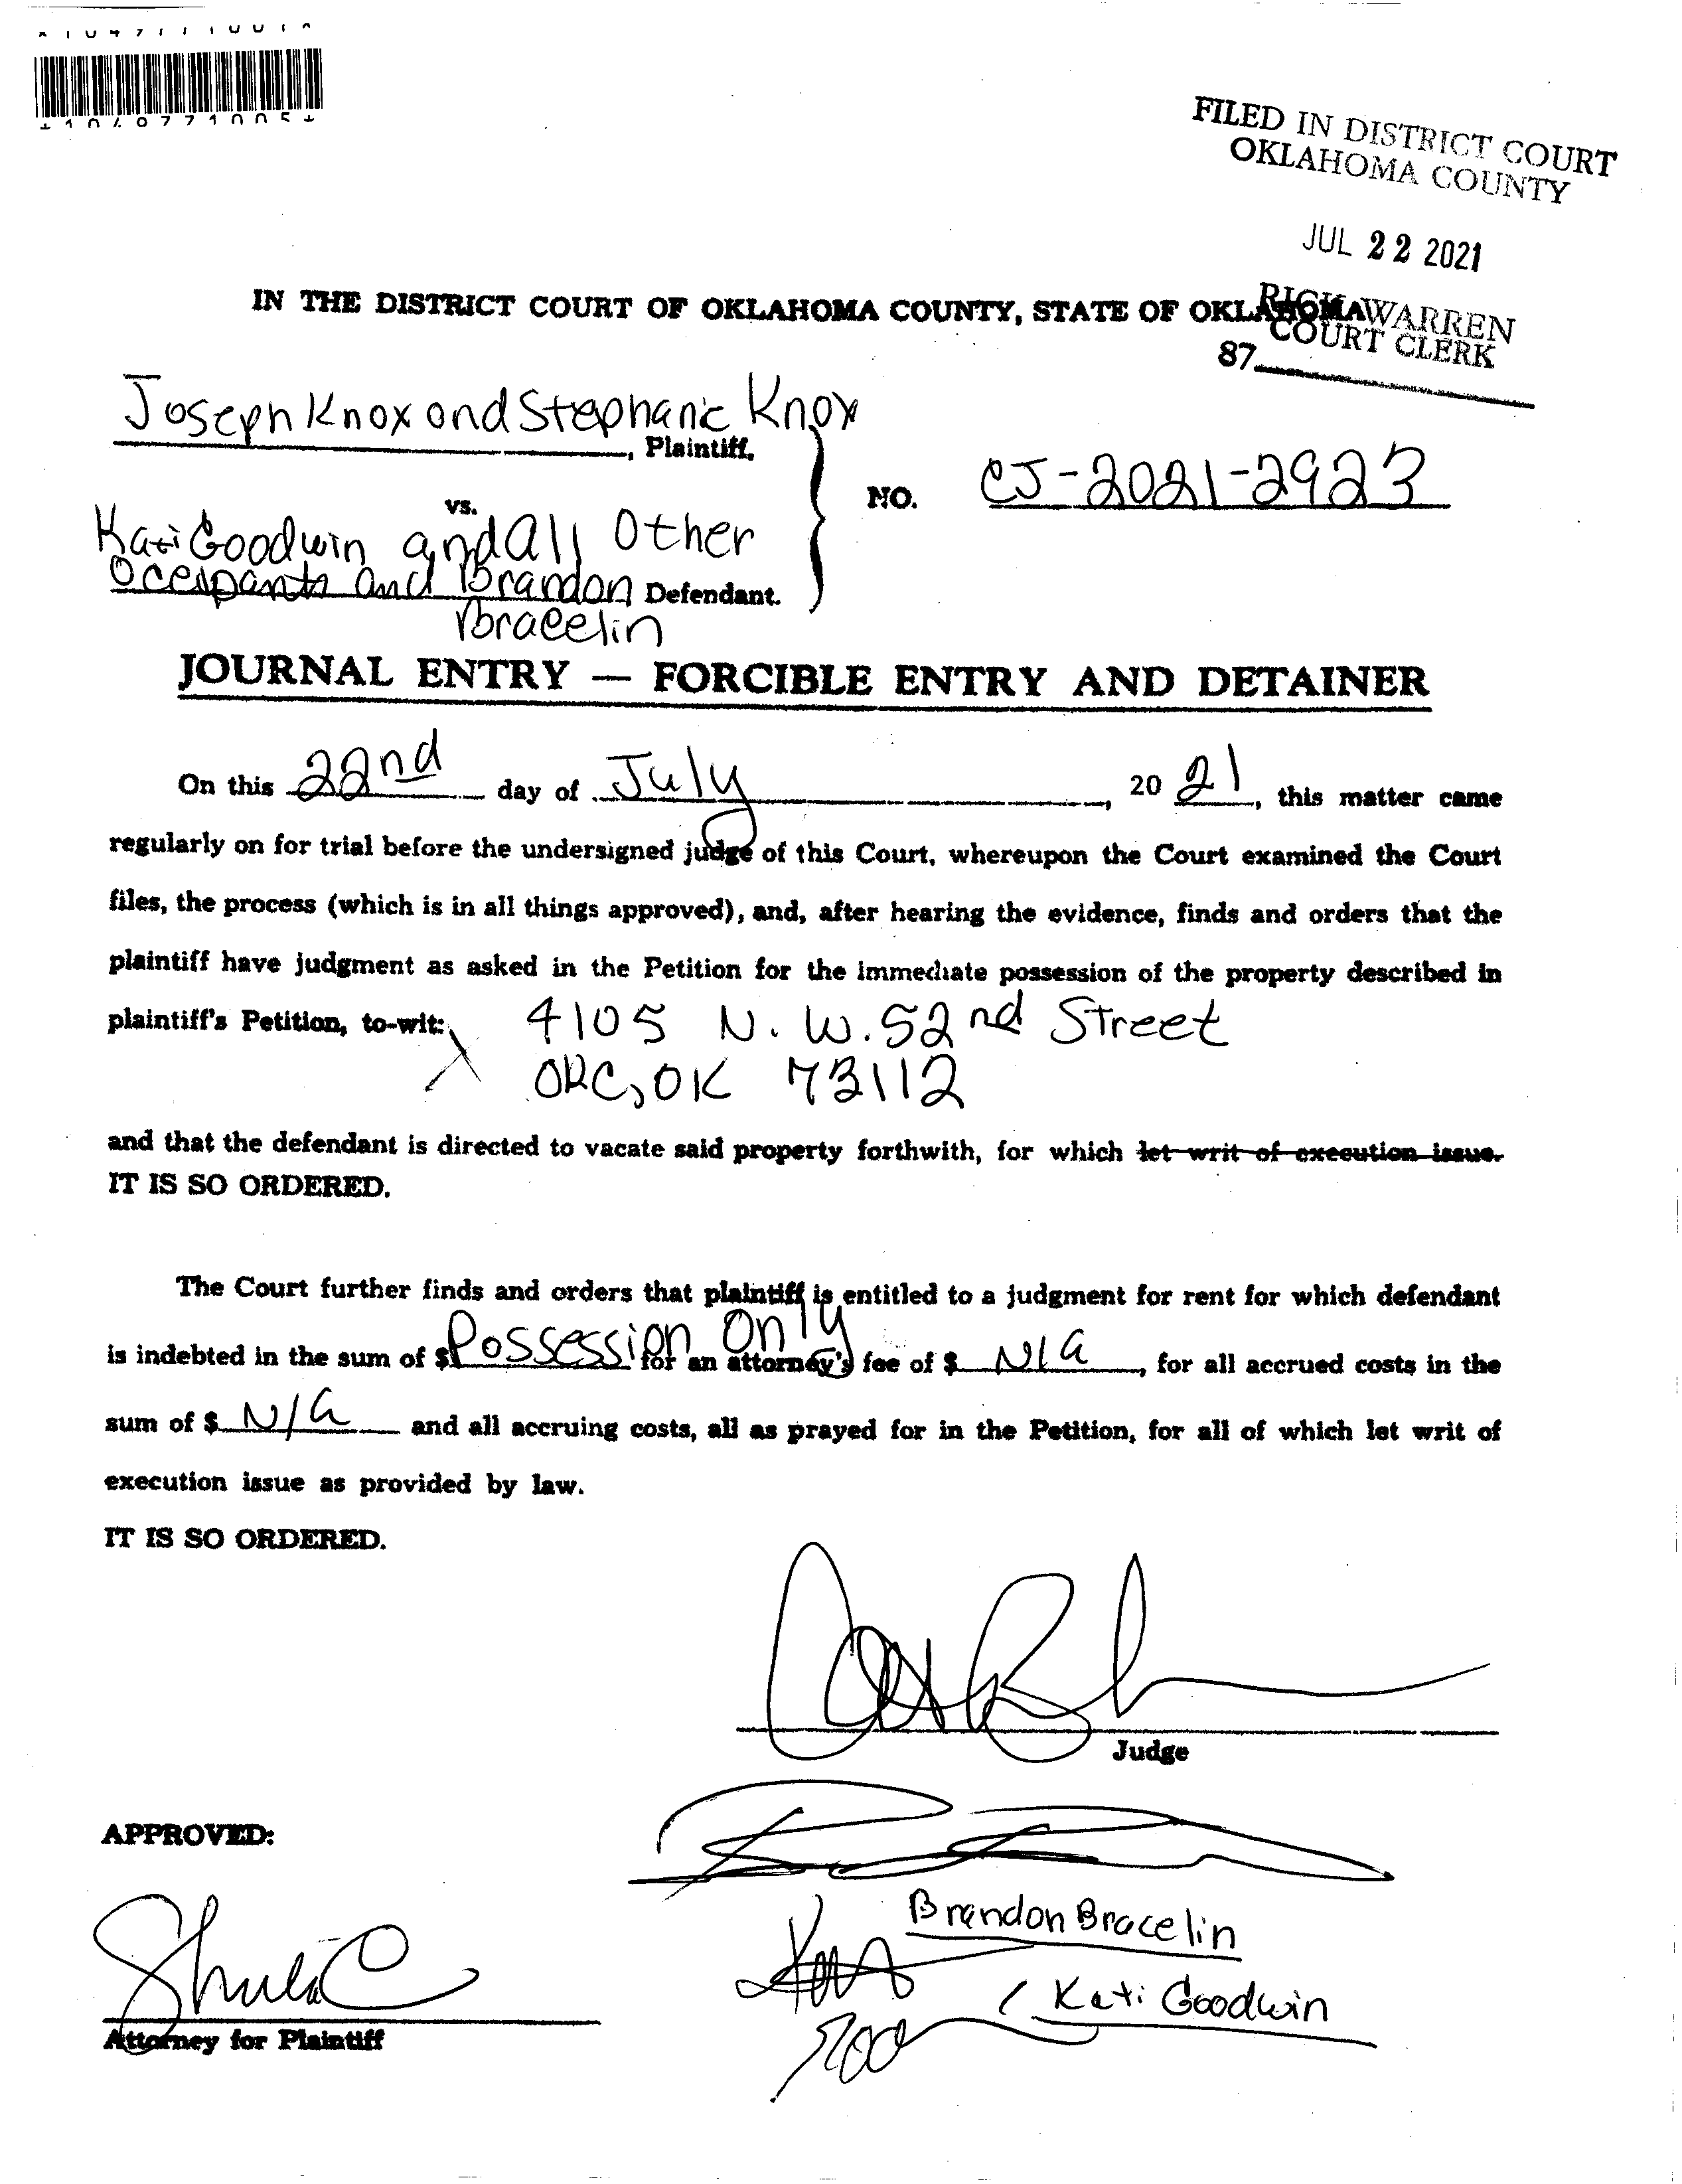 *1049771005*
FILED IN DISTRICT COURT
OKLAHOMA COUNTY
JUL 22 2021
RICK WARREN
COURT CLERK
87
IN THE DISTRICT COURT OF OKLAHOMA COUNTY, STATE OF OKLAHOMA
Joseph Knox and Stephanie Knox
, Plaintiff,
vs.
NO. CJ-2021-2923
Kati Goodwin and all Other
Occupants and Brandon Defendant.
Bracelin
JOURNAL ENTRY — FORCIBLE ENTRY AND DETAINER
On this 22nd day of July, 20 21, this matter came
regularly on for trial before the undersigned judge of this Court, whereupon the Court examined the Court
files, the process (which is in all things approved), and, after hearing the evidence, finds and orders that the
plaintiff have judgment as asked in the Petition for the immediate possession of the property described in
plaintiff's Petition, to-wit: 4105 N. W. 52nd Street
OKC, OK 73112
and that the defendant is directed to vacate said property forthwith, for which let writ of execution issue.
IT IS SO ORDERED.
The Court further finds and orders that plaintiff is entitled to a judgment for rent for which defendant
is indebted in the sum of $ Possession Only for an attorney's fee of $ N/A, for all accrued costs in the
sum of $ N/A and all accruing costs, all as prayed for in the Petition, for all of which let writ of
execution issue as provided by law.
IT IS SO ORDERED.
Judge
APPROVED:
Brandon Bracelin
Kati Goodwin
Attorney for Plaintiff